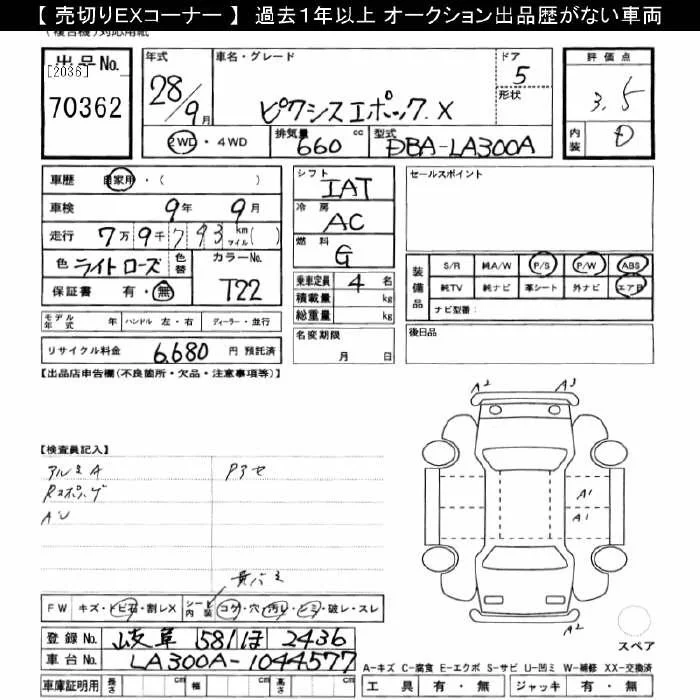 【 売切りEXコーナー 】 過去1年以上 オークション出品歴がない車両
(複合機)対応用紙
出品No.
[2036]
70362
年式
28/9月
車名・グレード
ピクシスエポック.X
ドア
5
形状
2WD・4WD
排気量
660 cc
型式
DBA-LA300A
評価点
3.5
内装
D
車歴 自家用・( )
車検 9年 9月
走行 7万9千793 km マイル( )
色 ライトローズ 色替 カラーNo. T22
保証書 有・無
モデル年式 年 ハンドル 左・右 ディーラー・並行
リサイクル料金 6,680 円 預託済
シフト
IAT
冷房
AC
燃料
G
乗車定員 4 名
積載量 kg
総重量 kg
名変期限
月 日
セールスポイント
装備品
S/R 純A/W P/S P/W ABS
純TV 純ナビ 革シート 外ナビ エアB
ナビ型番(
後日品
【出品店申告欄(不良箇所・欠品・注意事項等)】
【検査員記入】
アルミA Pアセ
Rスポソゲ
AU
FW キズ・トビ石・割レX シート内装 コゲ・穴・汚レ・シミ・破レ・スレ
登録No. 岐阜 581 ほ 2436
車台No. LA300A-1044577
車庫証明用 長さ cm 幅 cm 高さ cm
A2 A3
A1
A1
A2
スペア
A-キズ C-腐食 E-エクボ S-サビ U-凹ミ W-補修 XX-交換済
工具 有・無 ジャッキ 有・無